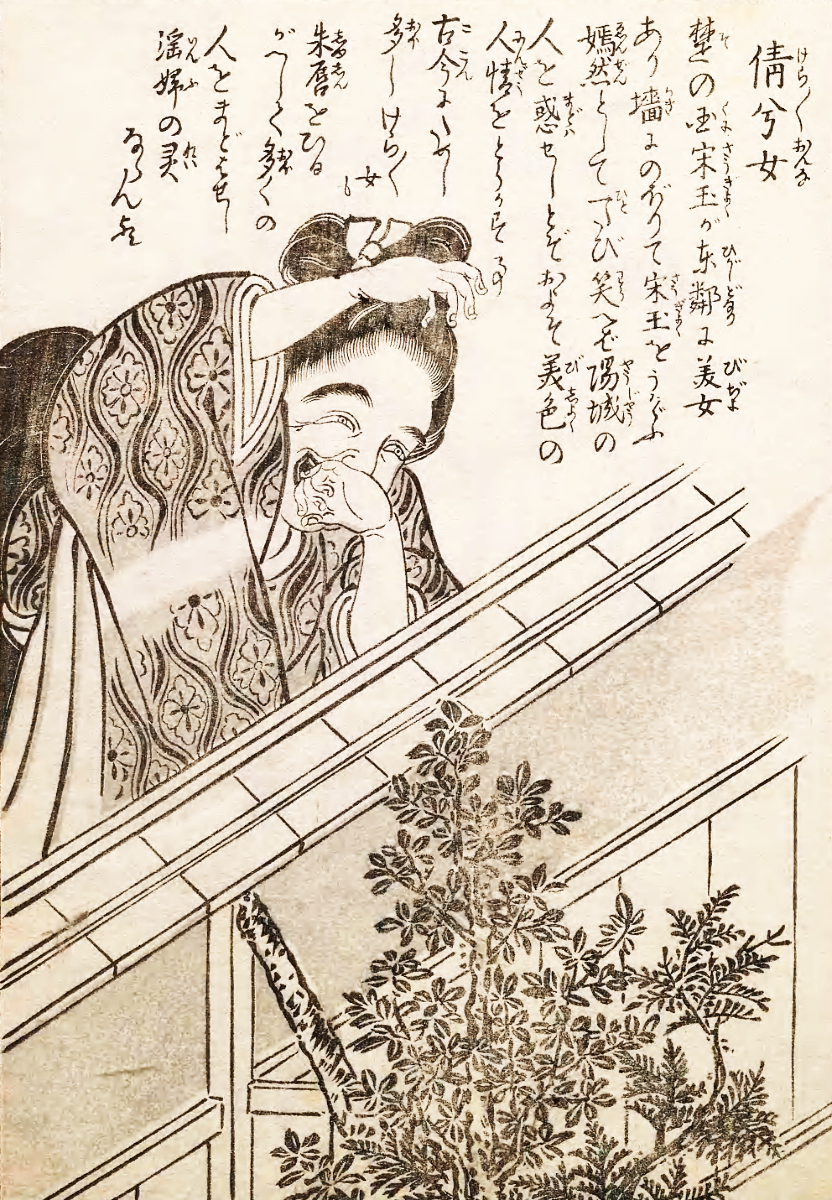 倩兮女
けらけらおんな
楚の国宋玉が東鄰に美女
あり墻にのぼりて宋玉をうかゞふ
嫣然として一たび笑へば陽城の
人を惑せしとぞおよそ美色の
人情をとらかす事
古今にためし
多しけらけら女も
朱唇をひる
がへして多くの
人をまどはせし
淫婦の霊
ならんか